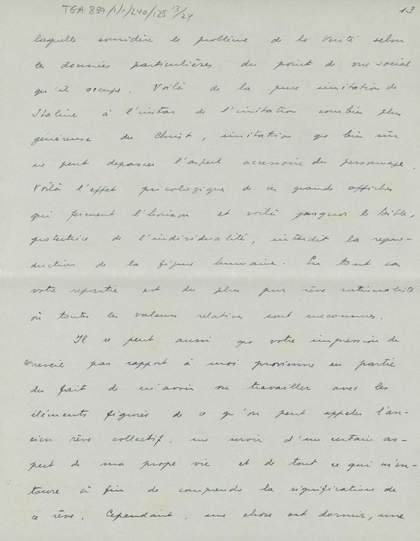 TGA 889/1/1/240/125 13/24
13
laquelle considère le problème de la vérité selon
les données particulières du point de vue social
qu'il occupe. Voilà de la pure imitation de
Staline à l'instar de l'imitation combien plus
généreuse du Christ, imitation que bien sûr
ne peut depasser l'aspect accessoire du personnage.
Voilà l'effet psicologique de ces grands affiches
qui ferment l'horizon et voilà pourquoi la bible,
protectrice de l'individualité, interdit la repro-
duction de la figure humaine. En tout cas
votre reproche est du plus pur rêve nationaliste
où toutes les valeurs relatives sont méconnues.
Il se peut aussi que votre impression de
reveil par rapport à moi provienne en partie
du fait de m'avoir vu travailler avec les
éléments figurés de ce qu'on peut appeler l'an-
cien rêve collectif, me servir d'un certain as-
pect de ma propre vie et de tout ce qui m'en-
toure à fin de comprendre la signification de
ce rêve. Cependant, une chose est dormir, une